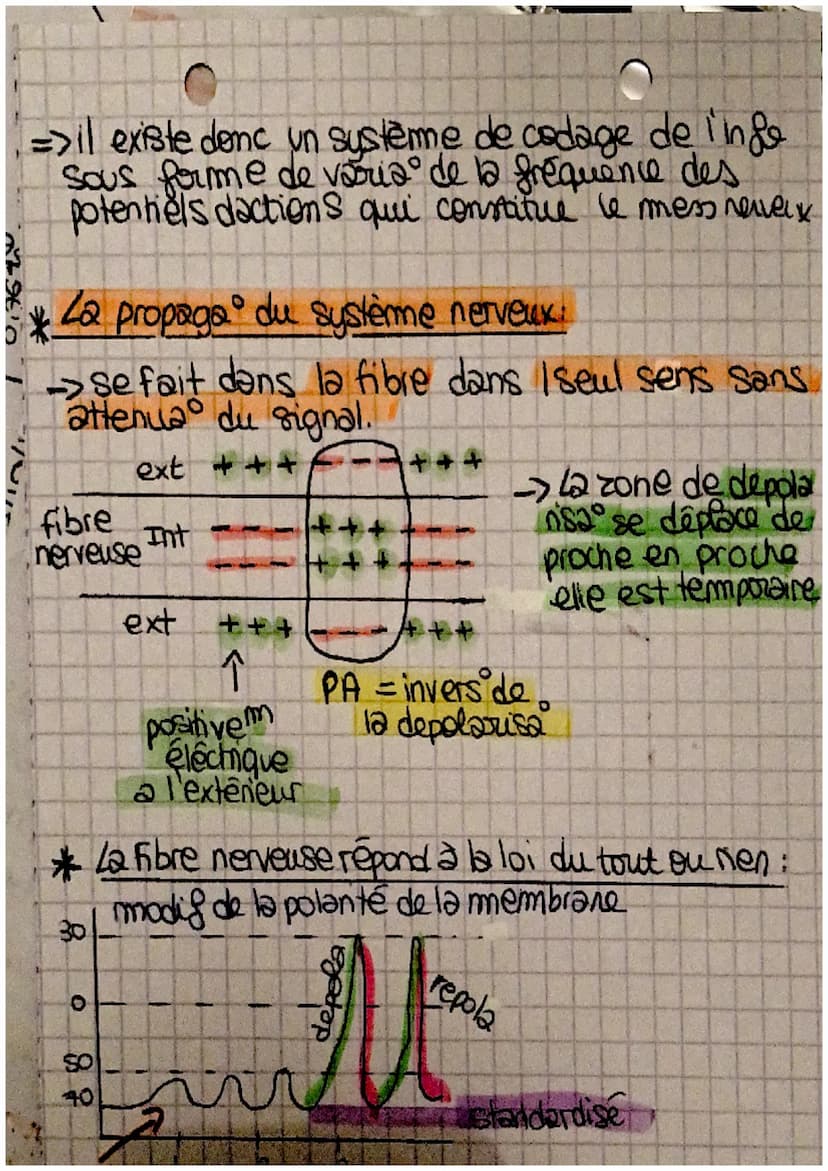 => il existe donc un système de codage de l'info
sous forme de varia° de la fréquence des
potentiels d'actions qui constitue le mess nerveux
* La propaga° du système nerveux:
-> se fait dans la fibre dans 1 seul sens sans
attenua° du signal.
ext + + + - - - + + +
-> La zone de depola
fibre nerveuse Int - - - + + + - - -
risa° se déplace de
- - - + + + - - -
proche en proche
elle est temporaire
ext + + + - - - + + +
PA = invers° de
la depolarisa°
positivem
électrique
a l'extérieur
* La fibre nerveuse répond à la loi du tout ou rien :
modif de la polarité de la membrane
30
depola
repola
0
50
70
standardisé